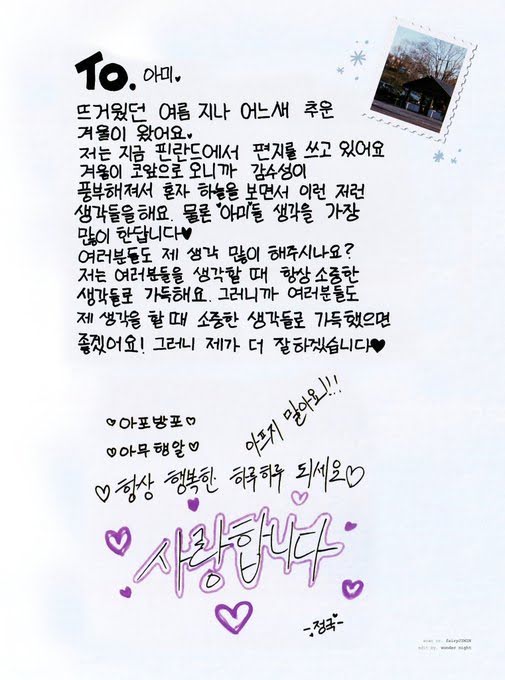 To. 아미♥
뜨거웠던 여름 지나 어느새 추운
겨울이 왔어요♥
저는 지금 핀란드에서 편지를 쓰고 있어요
겨울이 코앞으로 오니까 감수성이
풍부해져서 혼자 하늘을 보면서 이런 저런
생각들을해요. 물론 "아미"들 생각을 가장
많이 한답니다♥
여러분들도 제 생각 많이 해주시나요?
저는 여러분들을 생각할 때 항상 소중한
생각들로 가득해요. 그러니까 여러분들도
제 생각을 할 때 소중한 생각들로 가득했으면
좋겠어요! 그러니 제가 더 잘하겠습니다♥
아프지 말아요!!!
♡아포방포
♡아무행알♡
♡항상 행복한 하루하루 되세요♡
사랑합니다
-정국-
scan by.
edit by. wonder night